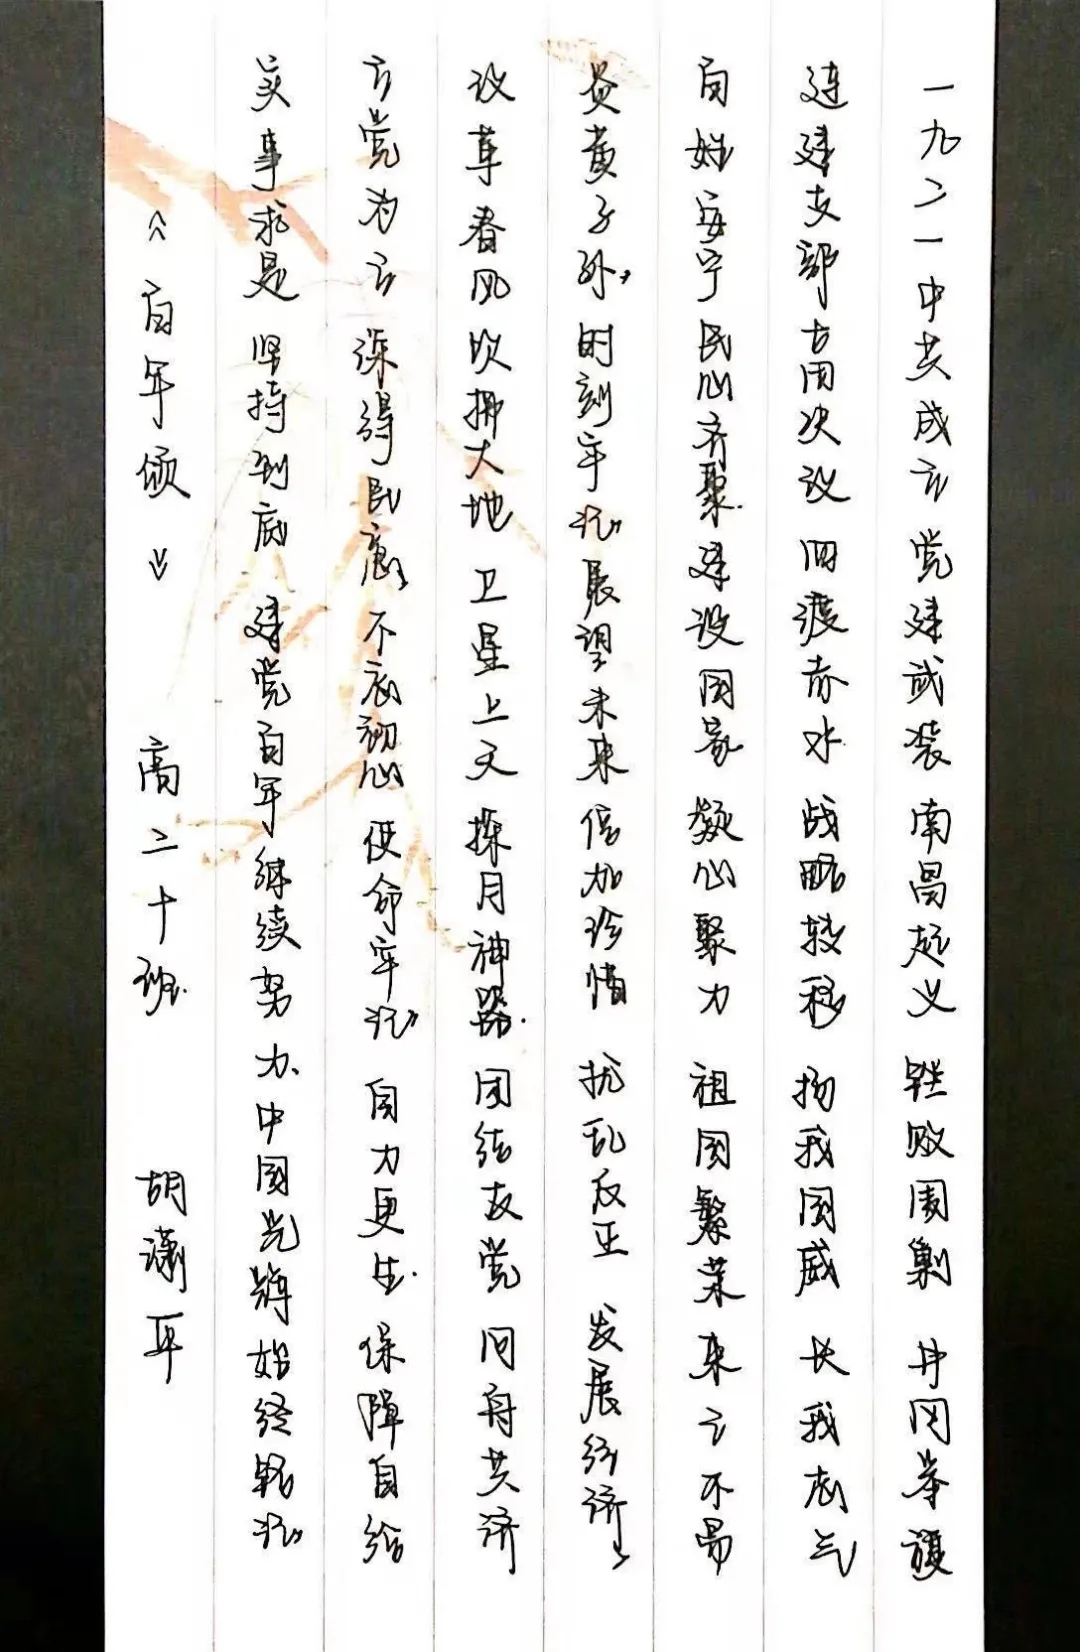 一九二一中共成立 党建武装 南昌起义 败围剿 井冈
连建支部 古田决议 四渡赤水 战略转移 扬我国威 长我志气
百姓安宁 民心齐聚 建设国家 凝心聚力 祖国繁荣 来之不易
炎黄子孙 时刻牢记 展望未来 倍加珍惜 拨乱反正 发展经济
改革春风 吹拂大地 卫星上天 探月神器 团结友党 同舟共济
立党为公 深得民意 不忘初心 使命牢记 自力更生 保障自给
实事求是 坚持到底 建党百年 继续努力 中国光辉 始终铭记
《百年颂》 高二十班 胡潇